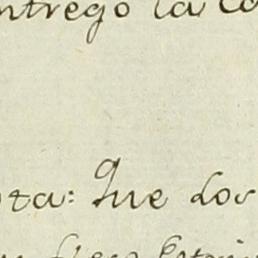 entrego la co
ota: Que los